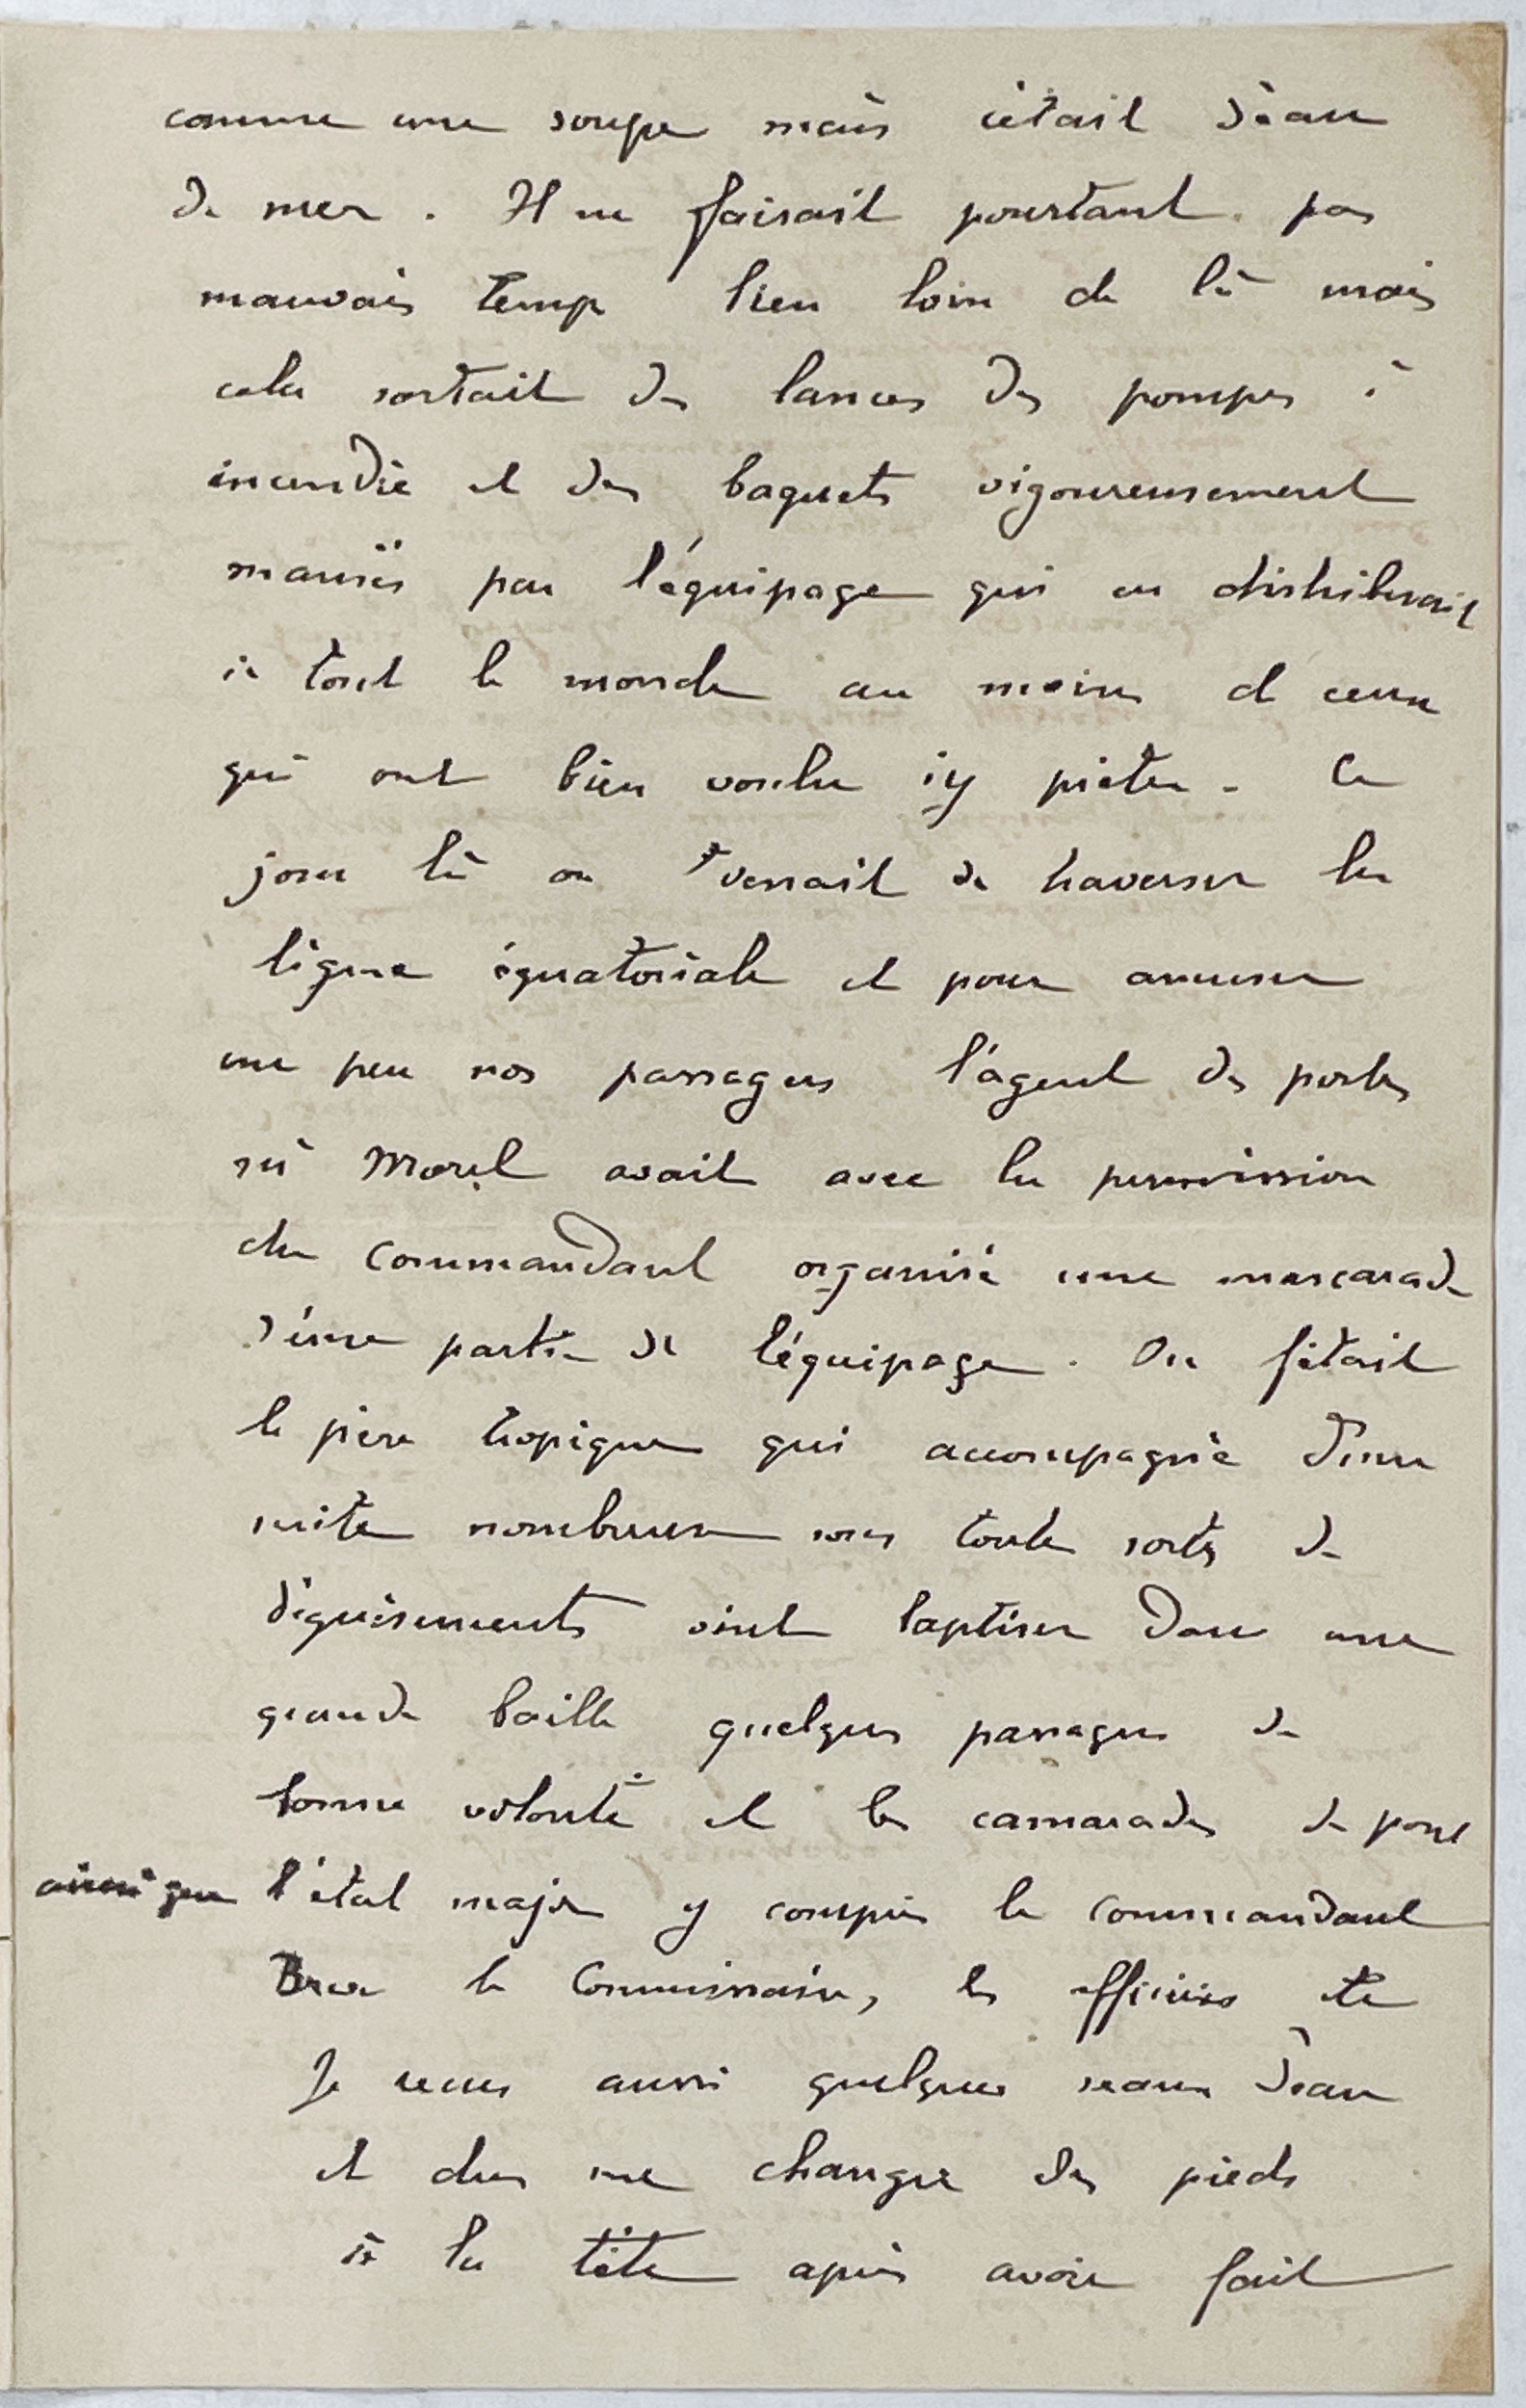 comme une soupe mais c'était d'eau
de mer. Il ne faisait pourtant pas
mauvais temp bien loin de là mais
cela sortait des lances des pompes à
incendie et des baquets vigoureusement
maniés par l'équipage qui en distribuait
à tout le monde au moins à ceux
qui ont bien voulu s'y prêter. Ce
jour là on venait de traverser la
ligne équatoriale et pour amuser
un peu nos passagers l'agent des postes
Morel avait avec la permission
du Commandant organisé une mascarade
d'une partie de l'équipage. On fêtait
le père tropique qui accompagné d'une
suite nombreuse sous toute sortes de
déguisements vint baptiser dans une
grande baille quelques passagers de
bonne volonté et les camarades de pont
ainsi que l'état major y compris le commandant
le Commissaire, les officiers etc
Je reçus aussi quelques seaux d'eau
et dus me changer des pieds
à la tête après avoir fait